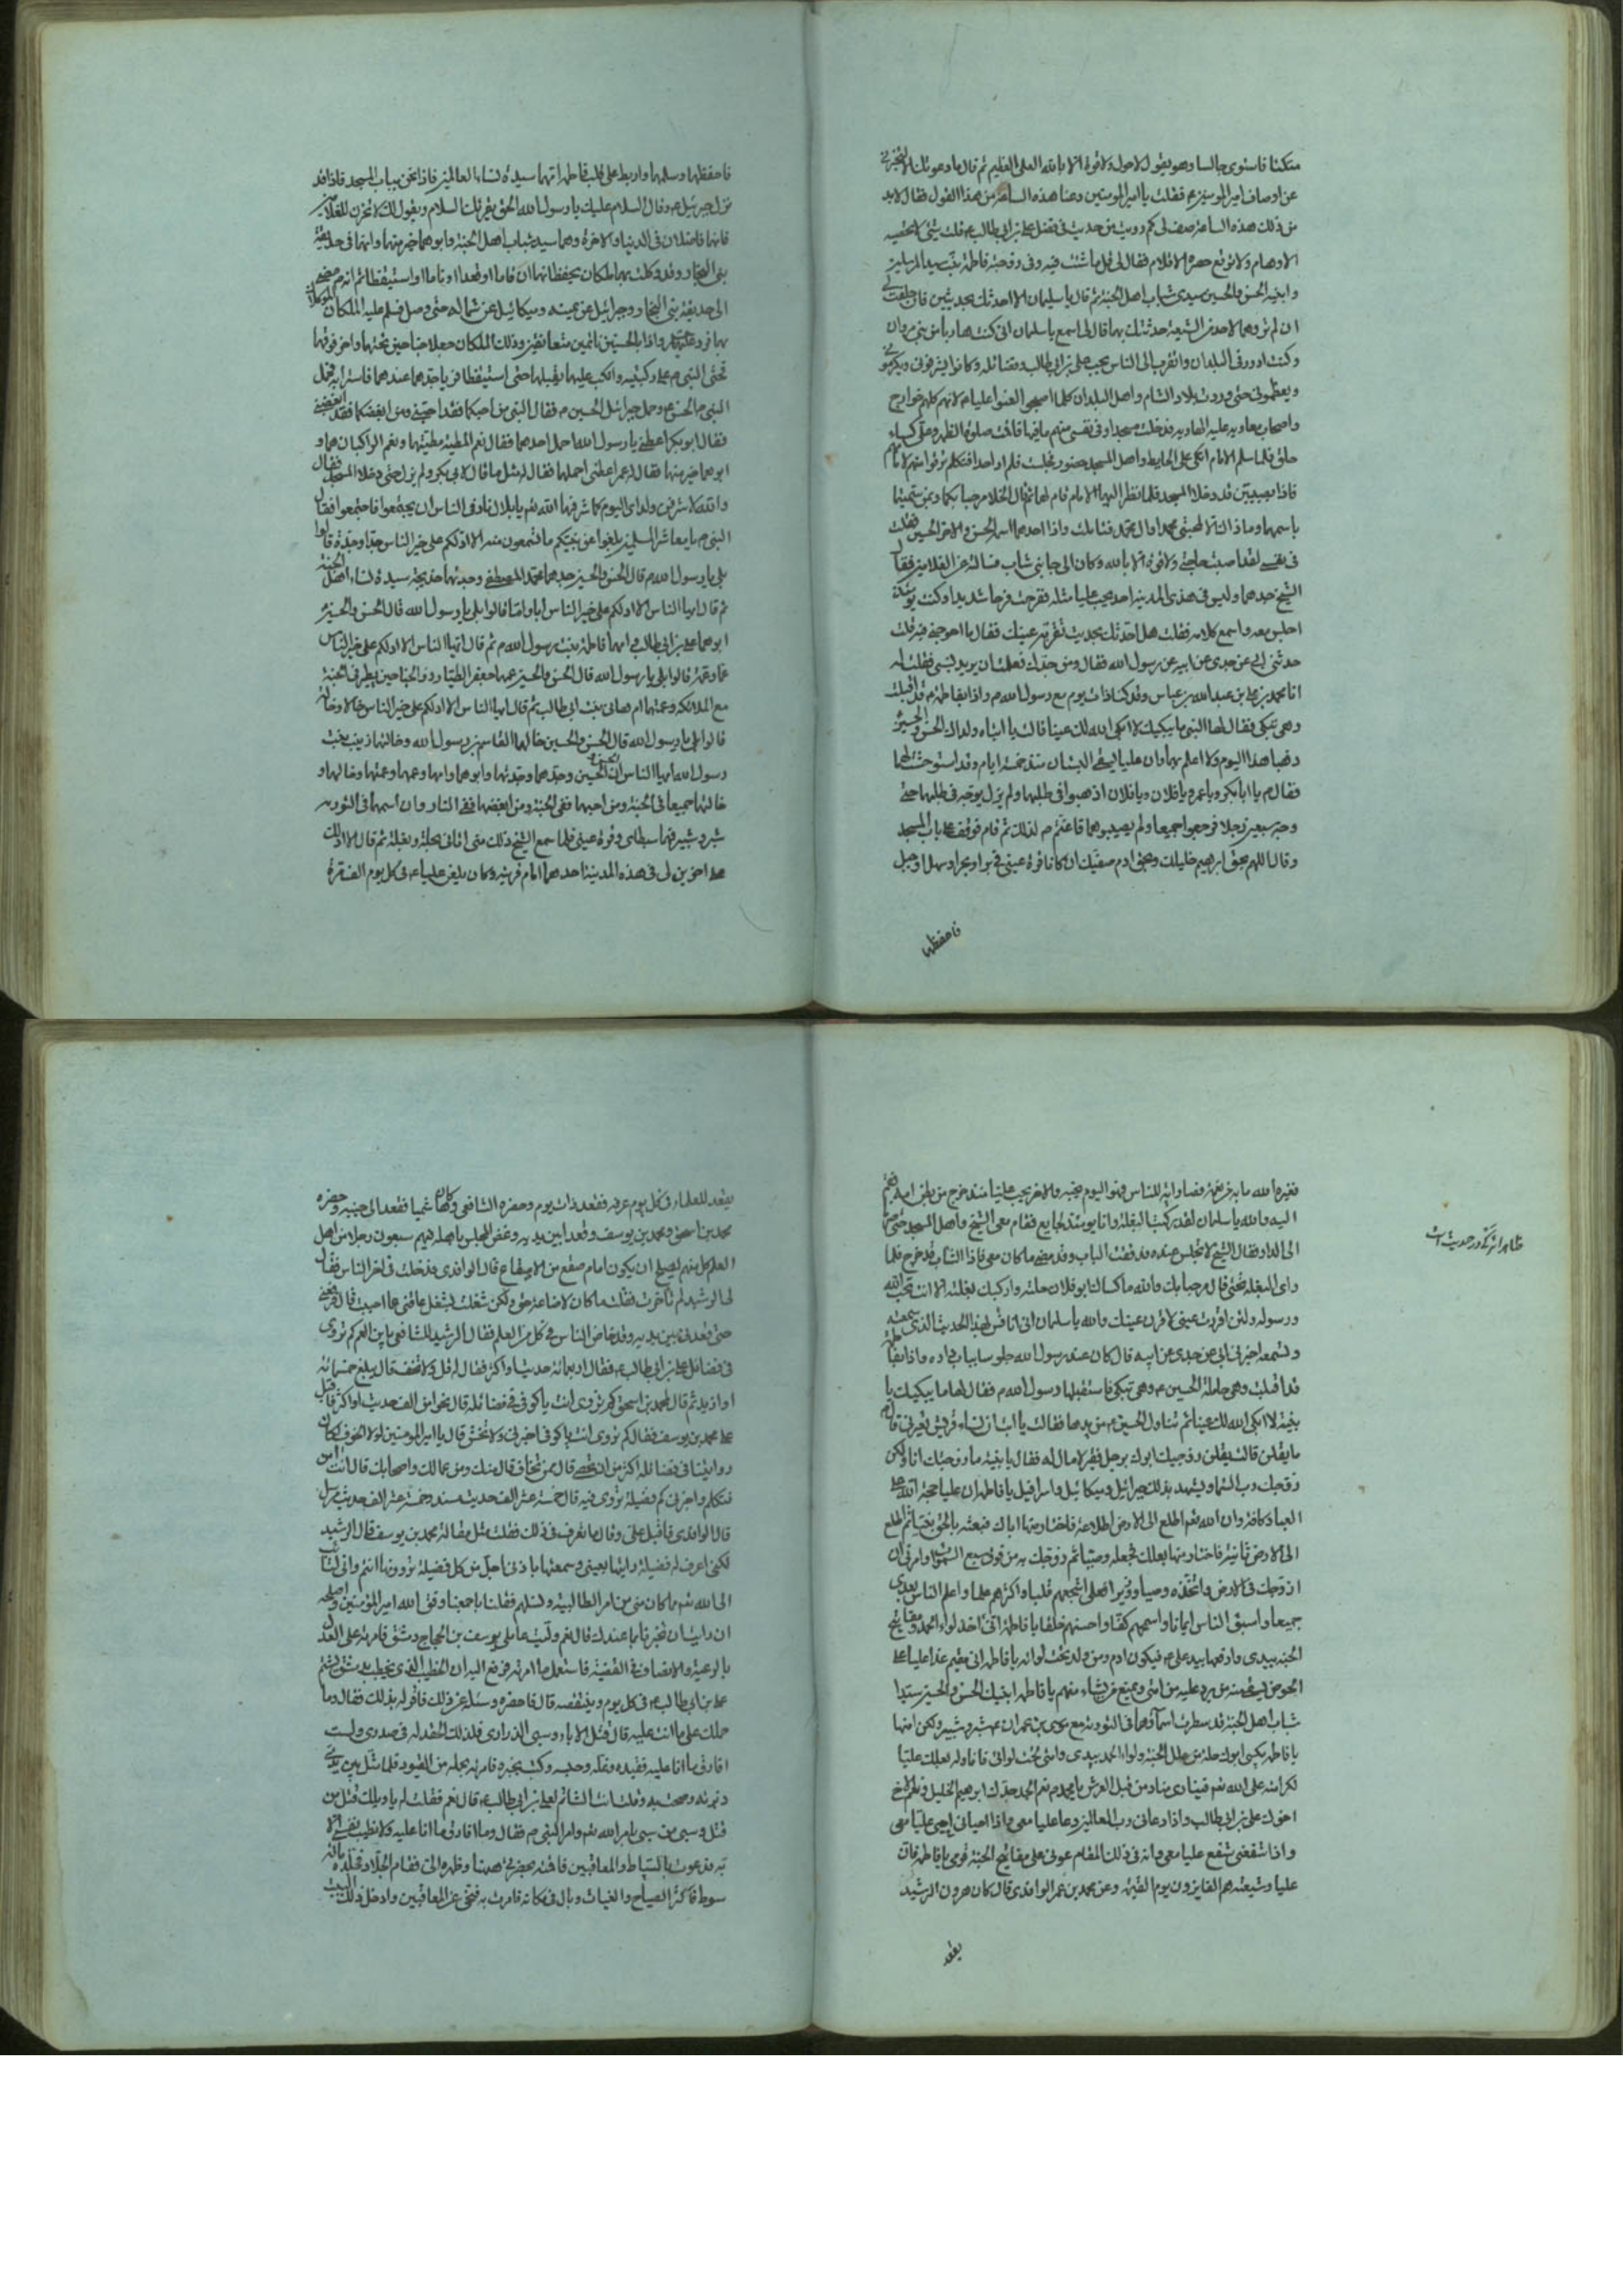 متكئا فاستوى جالسا وهو يقول لا حول ولا قوة الا بالله العلى العظيم ثم قال ما دعوتك الا لتخبرنى
عن اوصاف امير المومنين ع فقلت يا امير المومنين وعنا هذه الساعة من هذا القول فقال لابد
من ذلك هذه الساعة صف لى كم رويت من حديث فى فضل على بن ابى طالب ع قلت شيئ لا تحصيه
الاوهام ولا تو حصره الاقلام فقال لى قل ما شئت فيه وفى زوجته فاطمة بنت سيد المرسلين
وابنيه الحسن والحسين سيدى شباب اهل الجنة ثم قال يا سليمان الا احدثك بحديثين فان حلفت لى
ان لم تروهما لاحد من الشيعة حدثتك بهما قال لى اسمع يا سلمان انى كنت هاربا من بنى مروان
وكنت ادور فى البلدان واتقرب الى الناس بحب على بن ابى طالب وفضائله وكانوا يشرفونى ويكرمونى
ويعظمونى حتى وردت بلاد الشام واهل البلدان كلما اصبحوا لعنوا عليا ع لانهم كلهم خوارج
واصحاب معاويه عليه الهاويه فدخلت مسجدا وفى نفسى منهم ما فيها فاقمت صلوة الظهر وعلى كساء
خلق فلما سلم الامام اتكى على الحايط واهل المسجد حضور فجلست فلم ار احدا فتكلم توقرا منهم لامامهم
فاذا بصبيين قد دخلا المسجد فلما نظر اليهما الامام قام لهما ثم قال ادخلا مرحبا بكما وبمن سميتما
باسمهما وماذا الا لمحبتى محمد او ال محمد فتاملت واذا احدهما اسمه الحسن والاخر الحسين فقلت
فى نفسى لقد اصبت حاجتى ولا قوة الا بالله وكان الى جانبى شاب فسالته عن الغلامين فقال
الشيخ جدهما وليس فى هذى المدينه احد يحب عليا مثله ففرحت فرحا شديدا وكنت يومئذ
اجلس معه واسمع كلامه فقلت هل احدثك بحديث تقر به عينك فقال ما احوجنى فيه قلت
حدثنى ابى عن جدى عن ابيه عن رسول الله فقال ومن جدك فعلمت ان يريد نسبى فقلت له
انا محمد بن على بن عبدالله بن عباس وقد كنا ذات يوم مع رسول الله ص واذا بفاطمة ع قد اقبلت
وهى تبكى فقال لها النبى ما يبكيك لا ابكى الله لك عينا قالت يا ابتاه ولداك الحسن والحسين
ذهبا هذا اليوم ولا اعلم بهما وان عليا يسقى البستان منذ خمسة ايام وقد استوحشت لهما
فقال ص يا ابا بكر ويا عمر ويا فلان ويا فلان اذهبوا فى طلبهما ولم يزل يوجه فى طلبهما حتى
وجه سبعين رجلا فرجعوا جميعا ولم يصيبوهما فاغتم ص لذلك ثم قام فوقف على باب المسجد
وقال اللهم بحق ابرهيم خليلك وبحق ادم صفيك ان كانا قرة عينى فى بر او بحر او سهل او جبل
فاحفظهما
فاحفظهما وسلمهما واربط على قلب فاطمة انها سيدة نساء العالمين فاذا نحن بباب المسجد فاذا قد
نزل جبرئيل ع وقال السلام عليك يا رسول الله الحق يقرئك السلام ويقول لك لا تحزن للغلامين
فانهما فاضلان فى الدنيا والاخرة وهما سيدا شباب اهل الجنة وابوهما خير منهما وانهما فى حديقة
بنى النجار وقد وكلت بهما ملكان يحفظانهما ان قاما او قعدا او ناما او استيقظا ثم انه ص مضى
الى حديقة بنى النجار وجبرائيل عن يمينه وميكائيل عن شماله حتى وصل فسلم عليه الملكان الموكلان
بهما فرد عليهما واذا بالحسنين نائمين متعانقين وذلك الملكان جعلا جناحين تحتهما واخر فوقهما
فجثى النبى ص على ركبتيه وانكب عليهما يقبلهما حتى استيقظا فرايا جدهما عندهما فاستر ابه فحمل
النبى ص الحسن ع وحمل جبرائيل الحسين ع فقال النبى من احبكما فقد احبنى ومن ابغضكما فقد ابغضنى
فقال ابو بكر اعطنى يا رسول الله احمل احدهما فقال نعم المطية مطيتهما ونعم الراكبان هما و
ابوهما خير منهما فقال له عمر اعطنى احملهما فقال له مثل ما قال لابى بكر ولم يزل حتى دخلا المسجد فقال
والله لاشرفن ولداى اليوم كما شرفهما الله تعم يا بلال ناد فى الناس ان يجتمعوا فاجتمعوا فقال
النبى ص يا معاشر المسلمين بلغوا عن نبيكم ما تسمعون منه الا ادلكم على خير الناس جدا وجدة قالوا
بلى يا رسول الله ص قال الحسن والحسين جدهما محمد المصطفى وجدتهما خديجة سيدة نساء اهل الجنة
ثم قال ايها الناس الا ادلكم على خير الناس ابا واما قالوا بلى يا رسول الله قال الحسن والحسين
ابوهما على بن ابى طالب ع امهما فاطمة بنت رسول الله ص ثم قال ايها الناس الا ادلكم على خير الناس
عما وعمة قالوا بلى يا رسول الله قال الحسن والحسين عمهما جعفر الطيار ذو الجناحين يطير فى الجنة
مع الملائكه وعمتهما ام هانى بنت ابى طالب ثم قال ايها الناس الا ادلكم على خير الناس خالا وخالة
قالوا بلى يا رسول الله قال الحسن والحسين خالهما القاسم بن رسول الله وخالتهما زينب بنت
رسول الله ايها الناس ان الحسن والحسين وجدهما وجدتهما وابوهما وامهما وعمهما وعمتهما وخالهما و
خالتهما جميعا فى الجنة ومن احبهما ففى الجنة ومن ابغضهما ففى النار وان اسمهما فى التورية
شبر وشبير فهما سبطاى وقرة عينى فلما سمع الشيخ ذلك منى اتانى بحلة وبغلة ثم قال الا ادلك
على اخوين لى فى هذه المدينة احدهما امام قريته وكان يلعن عليا ع فى كل يوم الف مرة
فغيره الله ما به من نعمة فصار اية للناس فهو اليوم محبه والاخر يحب عليا منذ خرج من بطن امه فقم
اليه والله يا سلمان لقد ركبت البغلة وانا يومئذ لجايع فقام معى الشيخ واهل المسجد حتى صرنا
الى الدار فقال الشيخ لا تجلس عنده فدققت الباب وقد مضى ما كان معى فاذا الشاب قد خرج فلما
راى البغلة تحتى قال مرحبا بك والله ما كسا لنا ابو فلان حلته واركبك بغلته الا انت تحب الله
ورسوله ولئن اقررت عينى لاقرن عينك والله يا سلمان انى انا نس لهذا الحديث الذى سمعته
وتسمعه اخبرنى ابى عن جدى عن ابيه قال كان عند رسول الله جلوسا بباب داره واذا بفاطمة
قد اقبلت وهى حاملة الحسين ع وهى تبكى فاستقبلها رسول الله ص فقال لها ما يبكيك يا
بنية لا ابكى الله لك عينا ثم تناول الحسين ع من يدها فقالت يا ابت ان نساء قريش يعيرنى قال ص
ما يقلن قالت يقلن زوجك ابوك برجل فقير لا مال له فقال يا بنية ما زوجتك انا ولكن
زوجك رب السماء ويشهد بذلك جبرائيل وميكائيل واسرافيل يا فاطمة ان عليا حجة الله على
العباد كافة وان الله تعم اطلع الى الارض اطلاعة فاختار منها اباك فبعثه بالحق نبيا ثم اطلع
الى الارض ثانية فاختار منها بعلك فجعله وصيا ثم زوجك به من فوق سبع السموات وامرنى ان
ازوجك فى الارض واتخذه وصيا ووزيرا فعلى اشجعهم قلبا واكثرهم علما واعلم الناس بعدى
جميعا واسبق الناس ايمانا واسمحهم كفا واحسنهم خلقا يا فاطمة انى اخذ لواء الحمد ومفاتيح
الجنة بيدى وادفعها بيد على ع فيكون ادم ومن ولد تحت لوائه يا فاطمة انى مقيم غدا عليا على
الحوض ليسقى منه من يرد عليه من امتى ويمنع من يشاء منهم يا فاطمة ابنيك الحسن والحسين سيدا
شباب اهل الجنة قد سطرت اسماؤهما فى التورية مع موسى بن عمران شبر وشبير ولكن امنها
يا فاطمة يكسى ابوك حلة من حلل الجنة ولواء الحمد بيدى وامتى تحت لوائى فاناوله بعلك عليا
لكرامته على الله تعم فينادى مناد من قبل العرش يا محمد ص نعم الجد جدك ابرهيم الخليل ونعم الاخ
اخوك على بن ابى طالب واذا دعانى رب العالمين دعا عليا معى واذا احيانى احيى عليا معى
واذا شفعنى شفع عليا معى وانه فى ذلك المقام عونى على مفاتيح الجنة قومى يا فاطمة فان
عليا وشيعته هم الفايزون يوم القيمة وعن محمد بن عمر الواقدى قال كان هرون الرشيد
يقعد
ظاهرا تركه در حديث است
يقعد للعلماء فى كل يوم عرفة فقعد ذات يوم وحضره الشافعى وكان هاشميا فقعد الى جنبه وحضره
محمد بن اسحق ومحمد بن يوسف وقعدا بين يديه وغص المجلس باهله فيهم سبعون رجلا من اهل
العلم كل منهم يصلح ان يكون امام صقع من الاصقاع قال الواقدى فدخلت فى اخر الناس فقال
لى الرشيد لم تاخرت فقلت ما كان لاضاعة حق ولكن شغلت بشغل عاقنى عما احببت قال فقربنى
حتى قعدنى بين يديه وقد خاض الناس فى كل من العلم فقال الرشيد للشافعى يا بن العم كم تروى
فى فضائل على بن ابى طالب ع فقال اربعمائة حديثا واكثر فقال له قل ولا تخف قال يبلغ خمسمائة
او ازيد ثم قال لمحمد بن اسحق كم تروى انت يا كوفى فى فضائله قال نحوا من الف حديث او اكثر فاقبل
على محمد بن يوسف فقال كم تروى انت يا كوفى اخبرنى ولا تخش قال يا امير المومنين لولا الخوف لكان
روايتنا فى فضائله اكثر من ان تحصى قال ممن تخاف قال منك ومن عمالك واصحابك قال انت امن
فتكلم واخبرنى كم فضيلة تروى فيه قال خمسة عشر الف حديث مسند وخمسة عشر الف حديث مرسل
قال الواقدى فاقبل على وقال ما تعرف فى ذلك فقلت مثل مقالة محمد بن يوسف قال الرشيد
لكنى اعرف له فضيلة رايتها بعينى وسمعتها باذنى اجل من كل فضيلة تروونها انتم وانى لتائب
الى الله تعم مما كان منى من امر الطالبية ونسلهم فقلنا باجمعنا وفق الله امير المؤمنين واصلحه
ان رايت ان تخبرنا بما عندك قال نعم وليت عاملى يوسف بن الحجاج دمشق فامرته على العدل
بالرعية والانصاف فى القضية فاستعمل ما امرته فرفع اليه ان الخطيب الذى يخطب بدمشق يشتم
على بن ابى طالب ع فى كل يوم وينقصه قال فاحضره وسئله عن ذلك فاقر له بذلك فقال وما
حملك على ما انت عليه قال قتل الاباء وسبى الذرارى فلذلك الحقد له فى صدرى ولست
افارق ما انا عليه فقيده وغله وحبسه وكتب بخبره فامرته بحمله من القيود فلما مثل بين يدى
زبرته وصحت به وقلت انت الشاتم لعلى بن ابى طالب ع قال نعم فقلت له يا ويلك قتل من
قتل وسبى من سبى بامر الله تعم وامر النبى ص فقال وما افارق ما انا عليه ولا تطيب نفسى الا
به فدعوت بالسياط والمعاقبين فاقمته بحضرتى هيهنا وظهره الى فقام الجلاد فجلده مائة
سوط فاكثر الصياح والغياث وبال فى مكانه فامرت به فنحى عن المعاقبين وادخل ذلك البيت